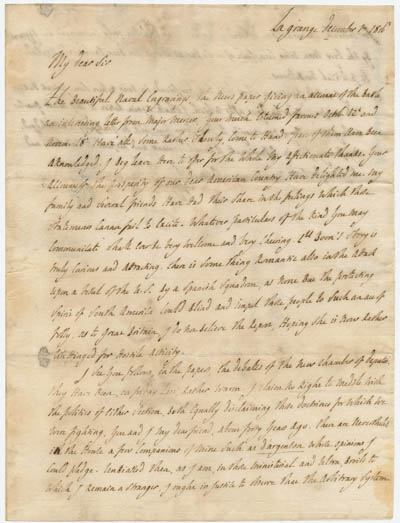 La grange December 1st 1816
My dear Sir
The Beautiful Naval Engravings, the News paper Giving an account of the
an interesting letter from Major Mercer, Your much esteemed favours Both 12th and
Have all, some Rather Slowly, Come to Hand. few of them Have Been
Acknowledged. I Beg leave Here to offer for the whole My affectionate thanks. Your
Accounts of the prosperity of our Dear American Country Have delighted me. My
family and Several friends Have Had their Share in the feelings which those
Statements Cannot fail to Excite. Whatever particulars of the Kind You May
Communicate Shall Ever be Very wellcome and Very Chearing. Story is
truly Curious and attracting. there is Some thing Romantic also in the Attack
Upon a vessel of the U.S. By a Spanish Squadron, as None But the protecting
Spirit of South America Could Blind and impel those people to Such an act of
folly. as to great Britain, I do not believe the Report, Hoping She is Now Rather
for Hostile activity.
I See You follow, in the Papers, the debates of the New chamber of Deputies
they Have Been, on Rather warm. I claim no Right to Meddle with
the politics of Either Section, Both Equally disclaiming those Doctrines for which We
were fighting, You and I my dear friend, about forty Years ago. there are Nevertheless
in the House a few Companions of Mine Such as d'argenson whose opinions I
Could pledge. Unbiased then, as I am, in those Ministerial and Ultra Broils to
which I Remain a Stranger, I ought in justice to observe that the Arbitrary System